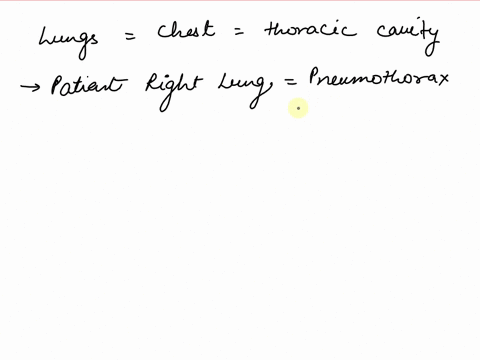 Lungs = Chest = thoracic cavity
→ Patient Right Lung = Pneumothorax